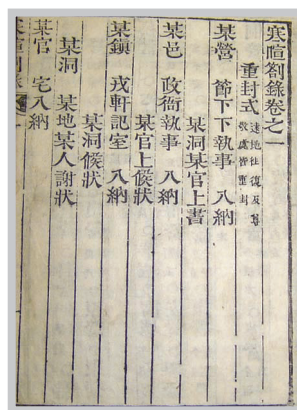 寒暄劄錄卷之一
重封式
遠地往復及尊
敬處皆重封
某營 節下下執事 入納
某洞某官上書
某邑 政衙執事 入納
某官上候狀
某鎮 戎軒記室 入納
某洞候狀
某洞 某地某人謝狀
某官 宅入納
寒暄劄錄